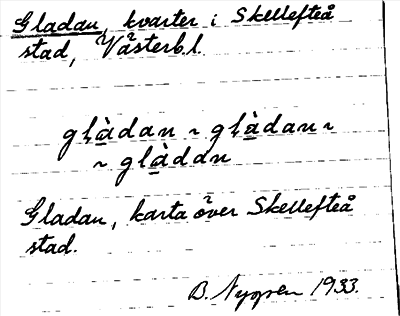 Gladan, kvarter i Skellefteå
stad, Västerb.l.
gḷàdan ~ gḷàdan ~
~ glàdan
Gladan, karta över Skellefteå
stad.
B. Nygren 1933.